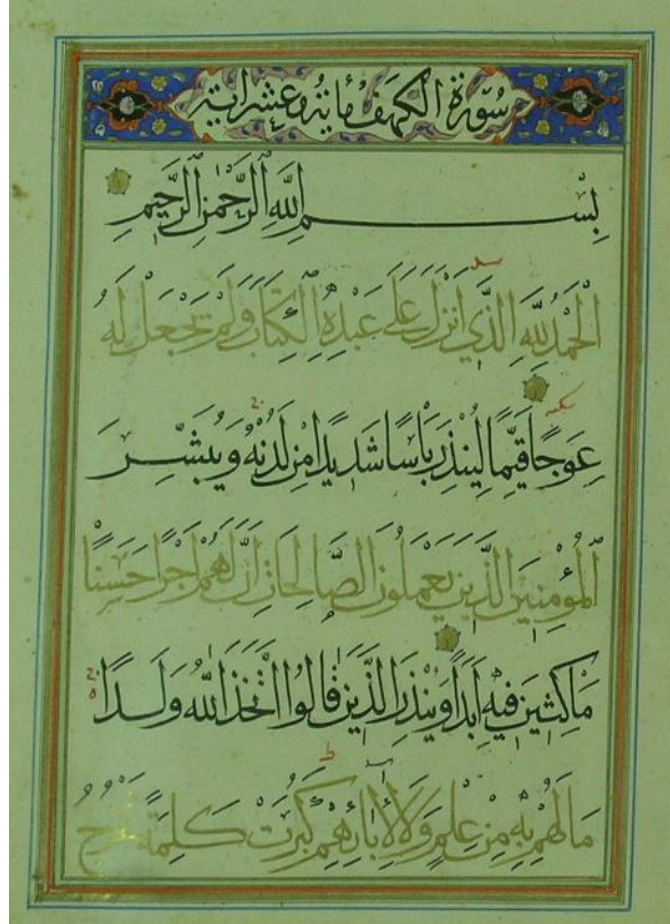 سُوْرَةُ الْكَهَفْ مَايَةُ وَعَشْرَايَةٍ
بِسْمِ اللهِ الرَّحْمٰنِ الرَّحٖيمِ
اَلْحَمْدُ لِلّٰهِ الَّذٖي اَنْزَلَ عَلٰى عَبْدِهِ الْكِتَابَ وَلَمْ يَجْعَلْ لَهُ
عِوَجًا قَيِّمًا لِيُنْذِرَ بَاْسًا شَدٖيدًا مِنْ لَدُنْهُ وَيُبَشِّرَ
الْمُؤْمِنٖينَ الَّذٖينَ يَعْمَلُونَ الصَّالِحَاتِ اَنَّ لَهُمْ اَجْرًا حَسَنًا
مَاكِثٖينَ فٖيهِ اَبَدًا وَيُنْذِرَ الَّذٖينَ قَالُوا اتَّخَذَ اللّٰهُ وَلَدًا
مَا لَهُمْ بِهٖ مِنْ عِلْمٍ وَلَا لِاٰبَائِهِمْ كَبُرَتْ كَلِمَةً تَخْرُجُ